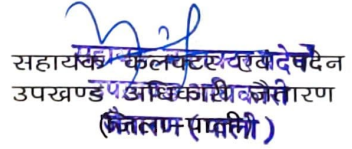 सहायक कलक्टर एवं पदेन
उपखण्ड अधिकारी जैतारण
(जैतारण-पाली)